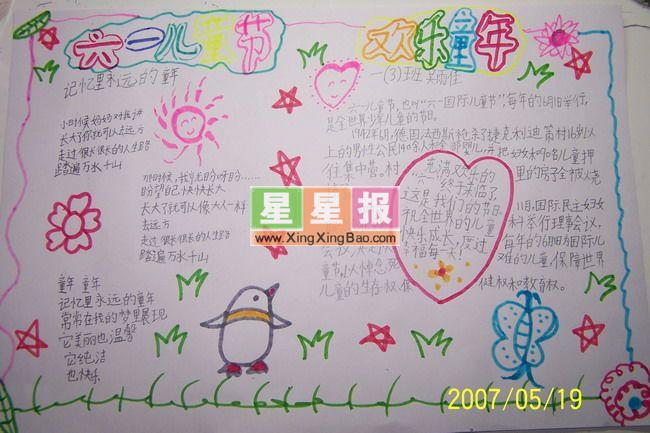 六一儿童节
欢乐童年
记忆里永远的童年
小时候妈妈对我讲
长大了你就可以去远方
走过很长很长的人生路
踏遍万水千山
那时候，我
盼望自己快快长大
长大了就可以像大人一样
去远方
走过很长很长的人生路
踏遍万水千山
童年 童年
记忆里永远的童年
常常在我的梦里展现
它美丽也温馨
它纯洁
也快乐
一（3）班
六一儿童节，也叫“六一国际儿童节”每年的6月1日举行，
是全世界少年儿童的节日。
1942年6月，德国法西斯枪杀了捷克利迪策村16岁以
上的男性公民140余人和全部婴儿，并把妇女和90名儿童押
往集中营。村
里的房子全被烧
国际民主妇女
科举行理事会议，
每年的6月1日为国际儿
保障世界
儿童的生存权、保
健权和教育权。
充满欢乐的
终于来临了，
这是我们的节日。
祝全世界的儿童
快乐成长，度过
幸福每一天！
星星报
www.XingXingBao.com
2007/05/19